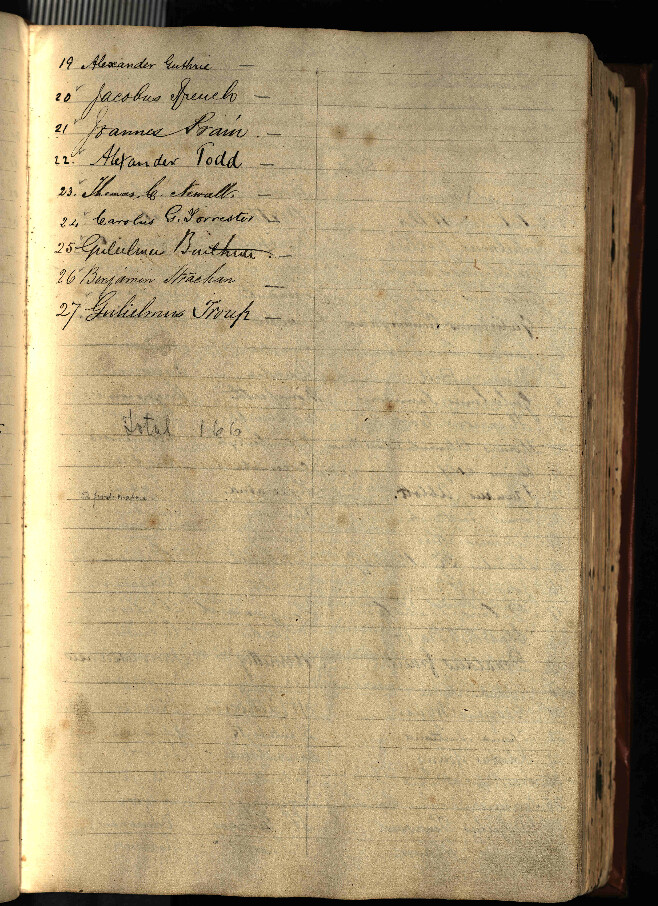 19 Alexander Guthrie —
20 Jacobus French —
21 Joannes Strain. —
22. Alexander Todd —
23. Thomas C. Newall. —
24 Carolus G. Forrester
25 Gulielmus —
26 Benjamin Strachan —
27 Gulielmus Troup —
Total 166